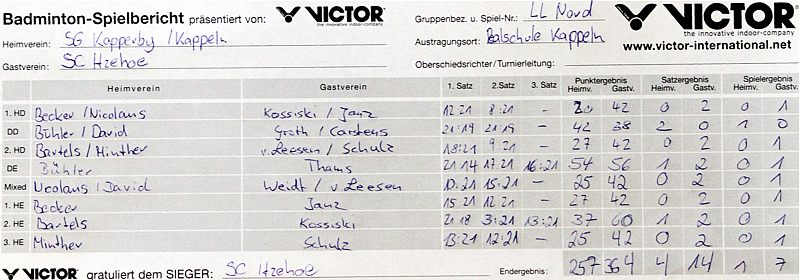 Badminton-Spielbericht präsentiert von: VICTOR Gruppenbez. u. Spiel-Nr.: LL Nord VICTOR
the innovative indoor-company
Heimverein: SG Kapperby / Kappeln Austragungsort: Balschule Kappeln the innovative indoor-company
www.victor-international.net
Gastverein: SC Itzehoe Oberschiedsrichter/Turnierleitung:
Heimverein Gastverein 1. Satz 2.Satz 3. Satz Punktergebnis Satzergebnis Spielergebnis
Heimv. Gastv. Heimv. Gastv. Heimv. Gastv.
1. HD Becker / Nicolaus Kossiski / Janz 12 21 8:21 - 20 42 0 2 0 1
DD Bühler / David Groth / Carstens 21:19 21:19 - 42 38 2 0 1 0
2. HD Bartels / Minther v. Leesen / Schulz 18:21 9:21 - 27 42 0 2 0 1
DE Bühler Thams 21 14 17 21 16:21 54 56 1 2 0 1
Mixed Nicolaus / David Weidt / v. Leesen 10:21 15:21 - 25 42 0 2 0 1
1. HE Becker Janz 15 21 12 21 - 27 42 0 2 0 1
2. HE Bartels Kossiski 21 18 3:21 13:21 37 60 1 2 0 1
3. HE Minther Schulz 13:21 12:21 - 25 42 0 2 0 1
VICTOR gratuliert dem SIEGER: SC Itzehoe Endergebnis: 257 364 4 14 1 7